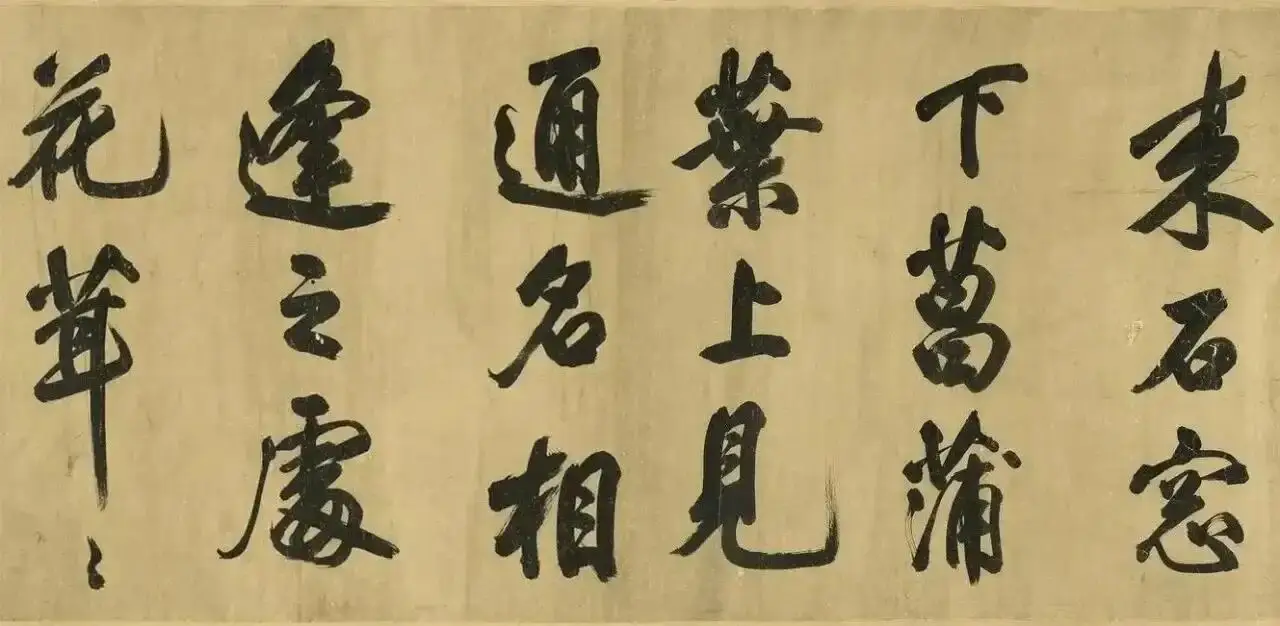 来石窓
下菖蒲
葉上見
通名相
逢之處
花茸〻